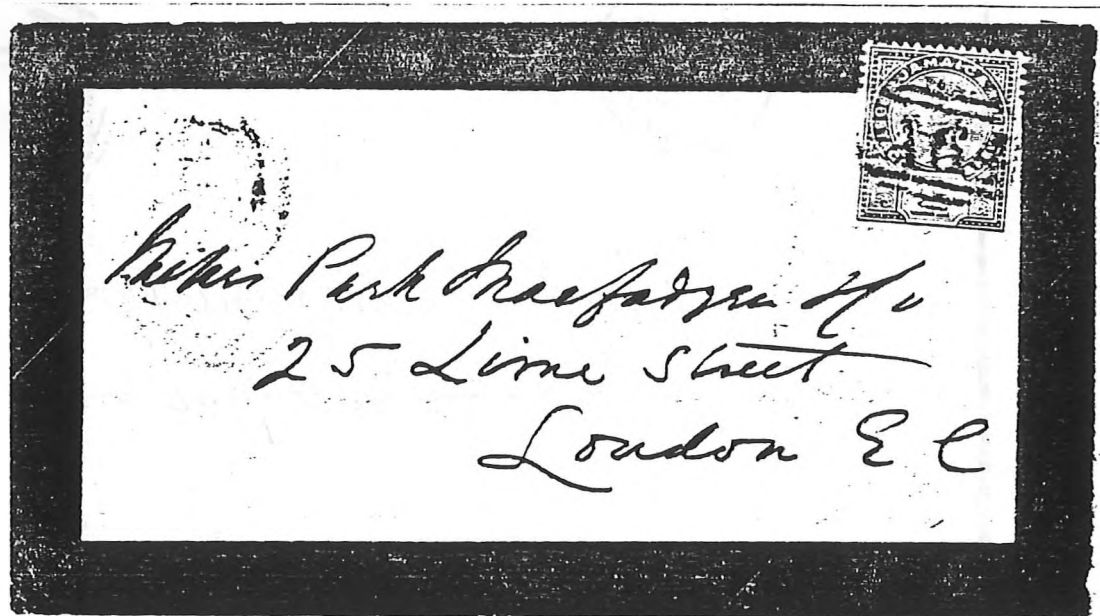 JAMAICA
Messrs Park Macfadyen & Co
25 Lime Street
London E C